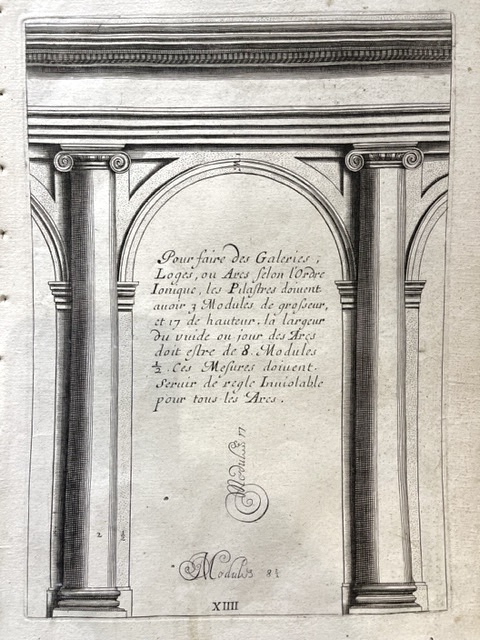 Pour faire des Galeries,
Loges, ou Arcs selon l'Ordre
Ionique, les Pilastres doiuent
auoir 3 Modules de grosseur,
et 17 de hauteur, la largeur
du vuide ou jour des Arcs
doit estre de 8. Modules
½. Ces Mesures doiuent
seruir de regle Inuiolable
pour tous les Arcs.
Modules 17
Modules 8½
XIIII